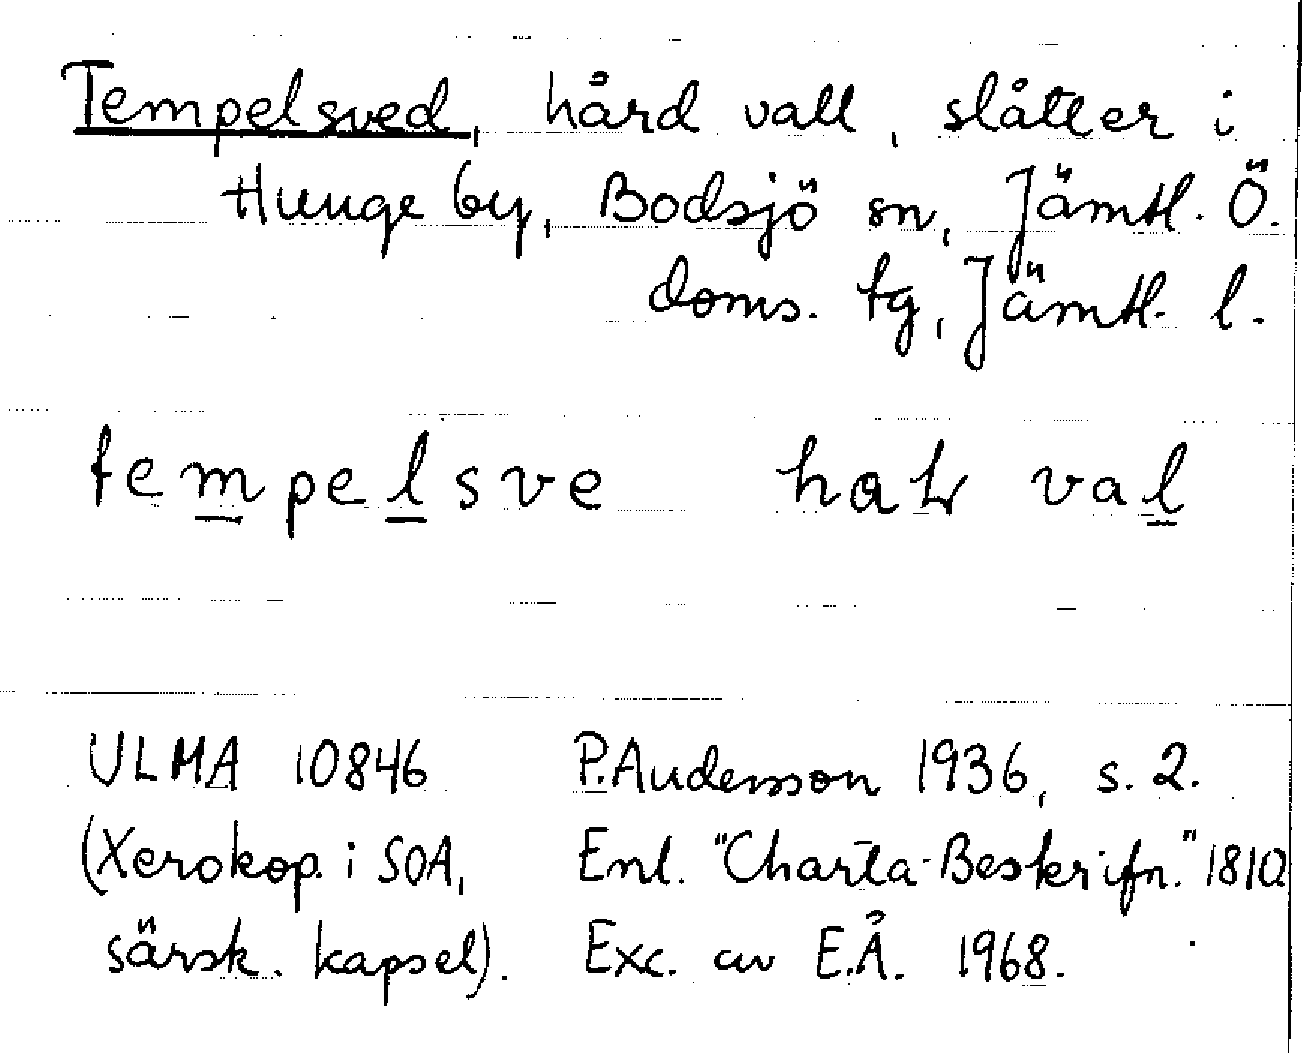 Tempelsved, hård vall, slåtter i
Hunge by, Bodsjö sn, Jämtl. Ö.
doms. tg, Jämtl. l.
tempelsve val
ULMA 10846 P. Andersson 1936, s. 2.
(Xerokop. i SOA, Enl. "Charta-Beskrifn." 1810
särsk. kapsel). Exc. av E.Å. 1968.